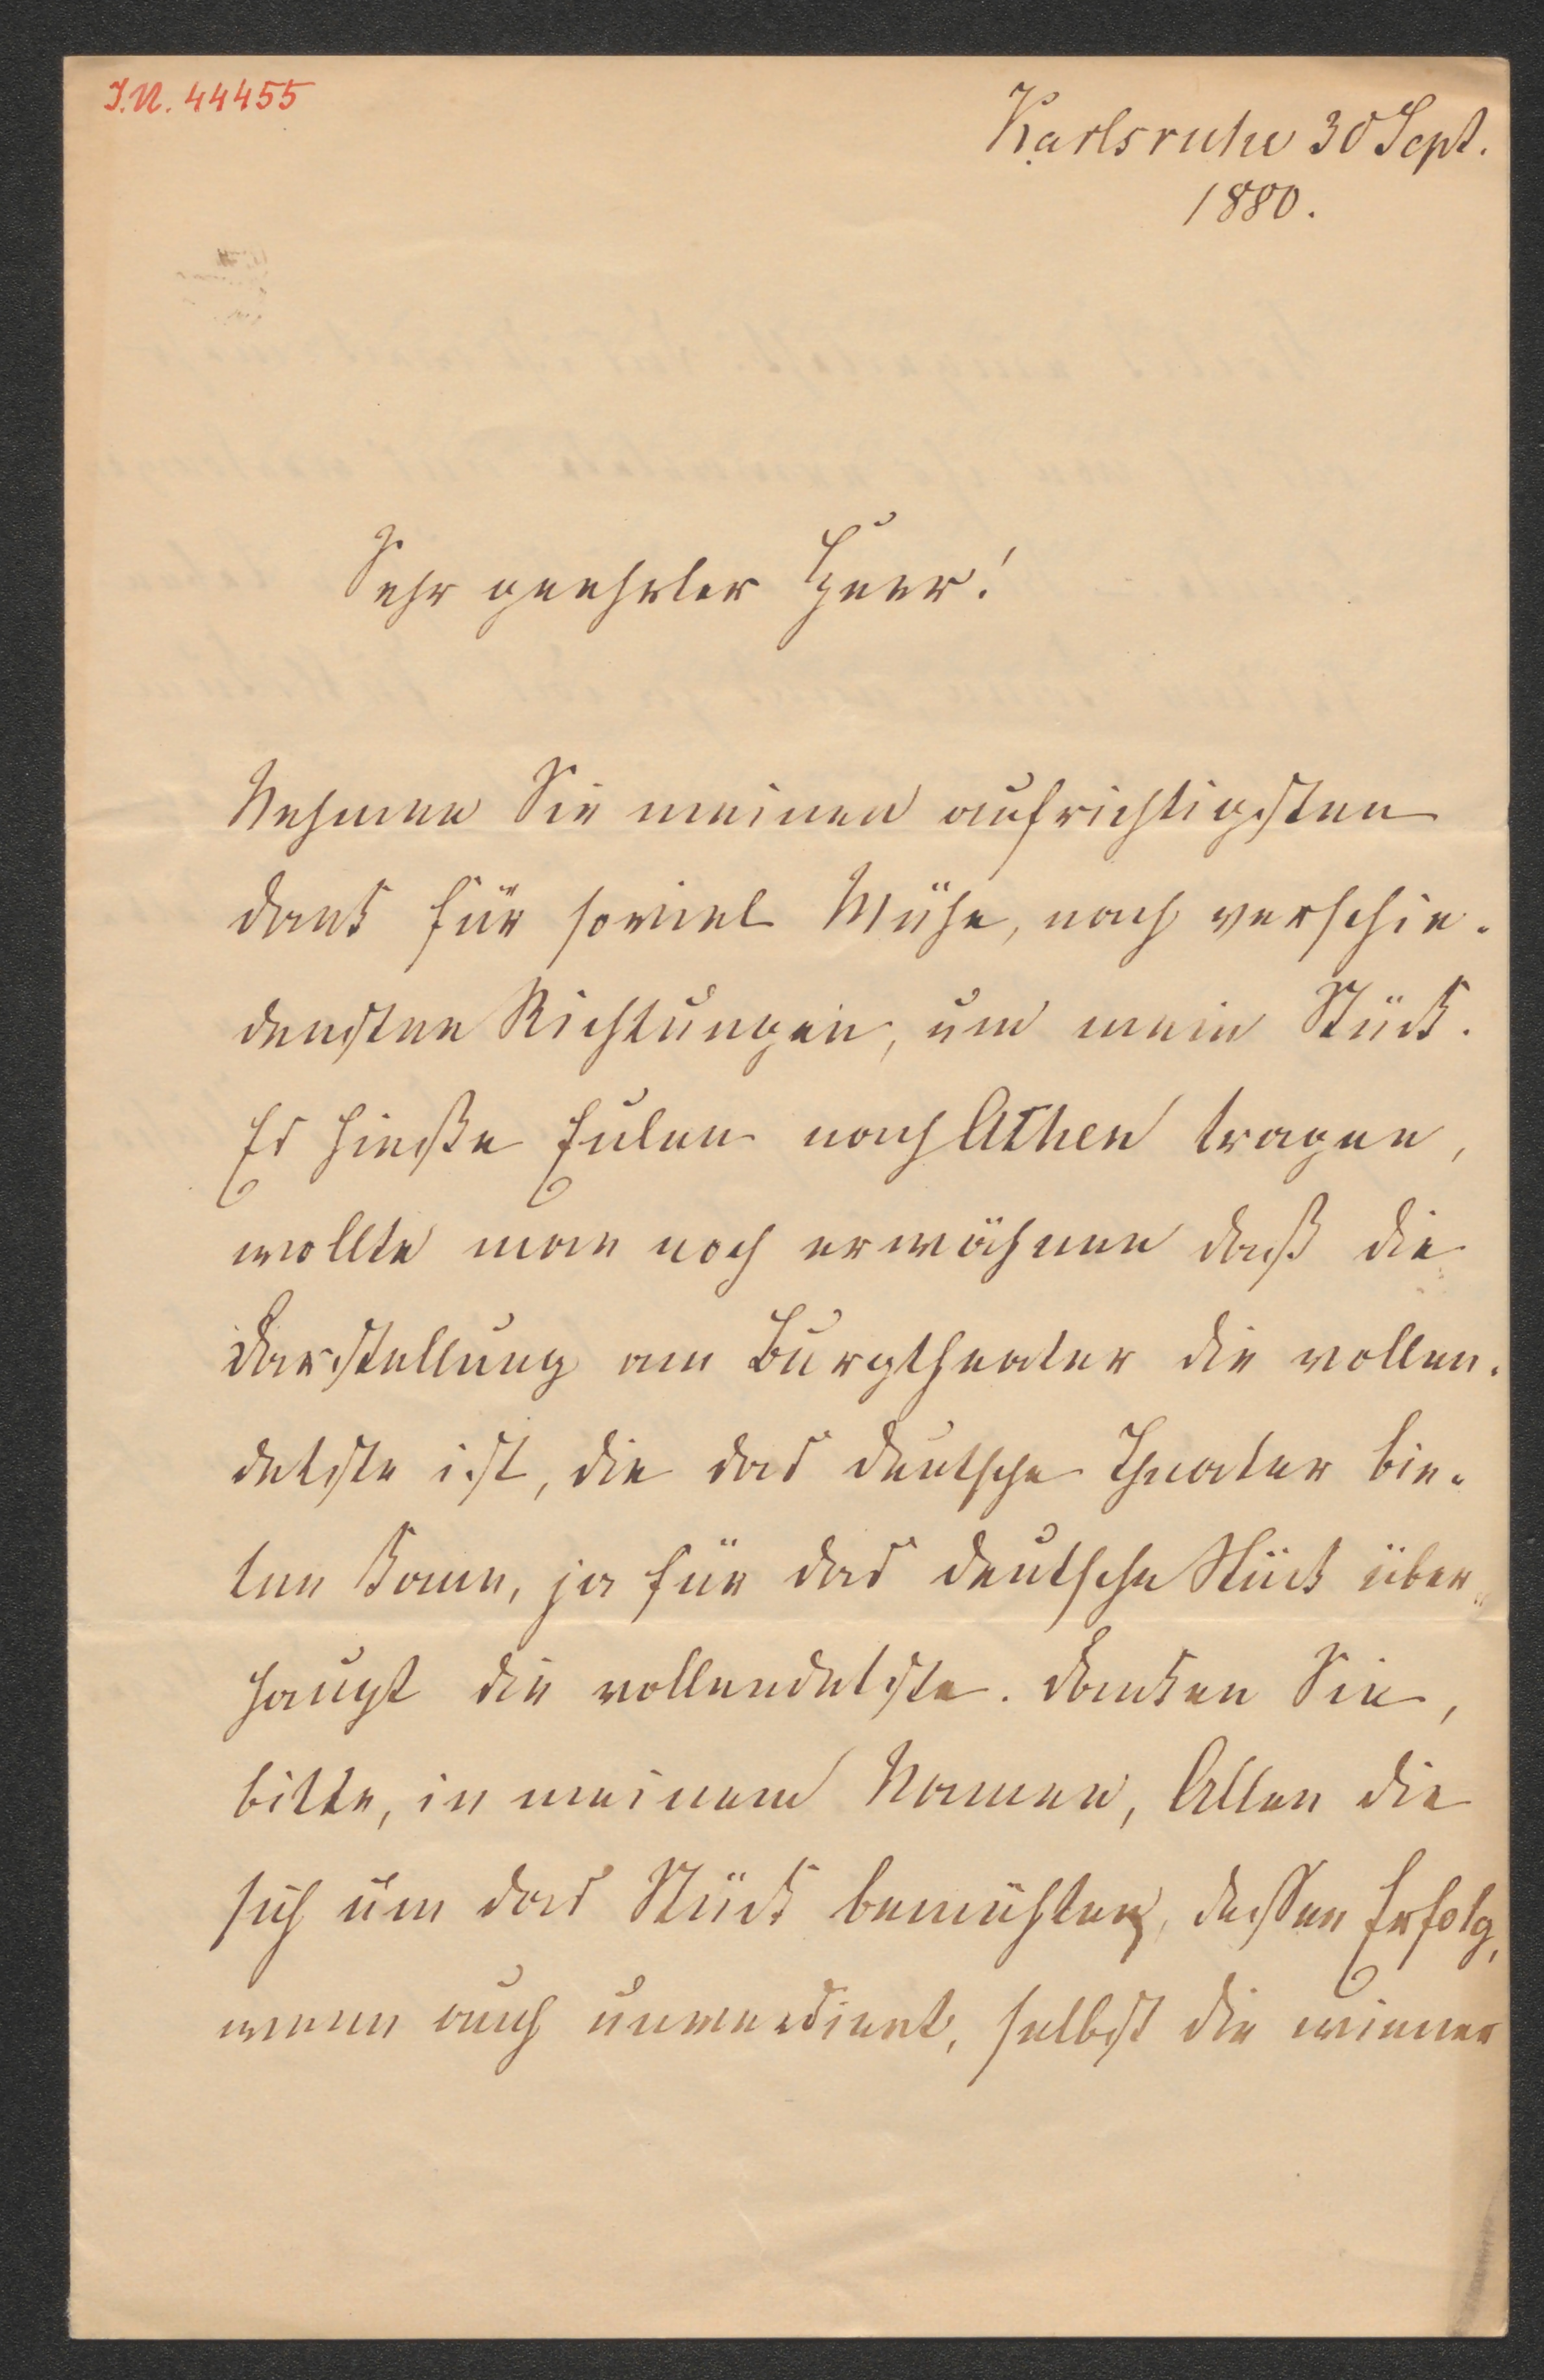 I.N. 44455
Karlsruhe 30 Sept.
1880.
Sehr geehrter Herr!
Nehmen Sie meinen aufrichtigsten
Dank für soviel Mühe, nach verschie-
densten Richtungen, um mein Stück.
Es hieße Eulen nach Athen tragen,
wollte man noch erwähnen daß die
Darstellung am Burgtheater die vollen-
detste ist, die das deutsche Theater bie-
ten kann, ja für das deutsche Stück über-
haupt die vollendetste. Danken Sie,
bitte, in meinem Namen, Allen die
sich um das Stück bemühten, dessen Erfolg,
wenn auch unverdient, selbst die wiener